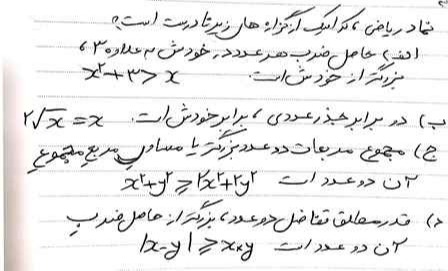 نماد ریاضی، کدامیک از گزاره های زیر نادرست است؟
الف) حاصل ضرب هر عدد در خودش به علاوه ۳،
بزرگتر از خودش است. x² + ۳ > x
ب) دو برابر جذر عددی، برابر خودش است. ۲√x = x
ج) مجموع مربعات دو عدد بزرگتر یا مساوی مربع مجموع
آن دو عدد است x² + y² ≥ ۲x² + ۲y²
د) قدر مطلق تفاضل دو عدد، بزرگتر از حاصل ضرب
آن دو عدد است |x - y| ≥ x × y